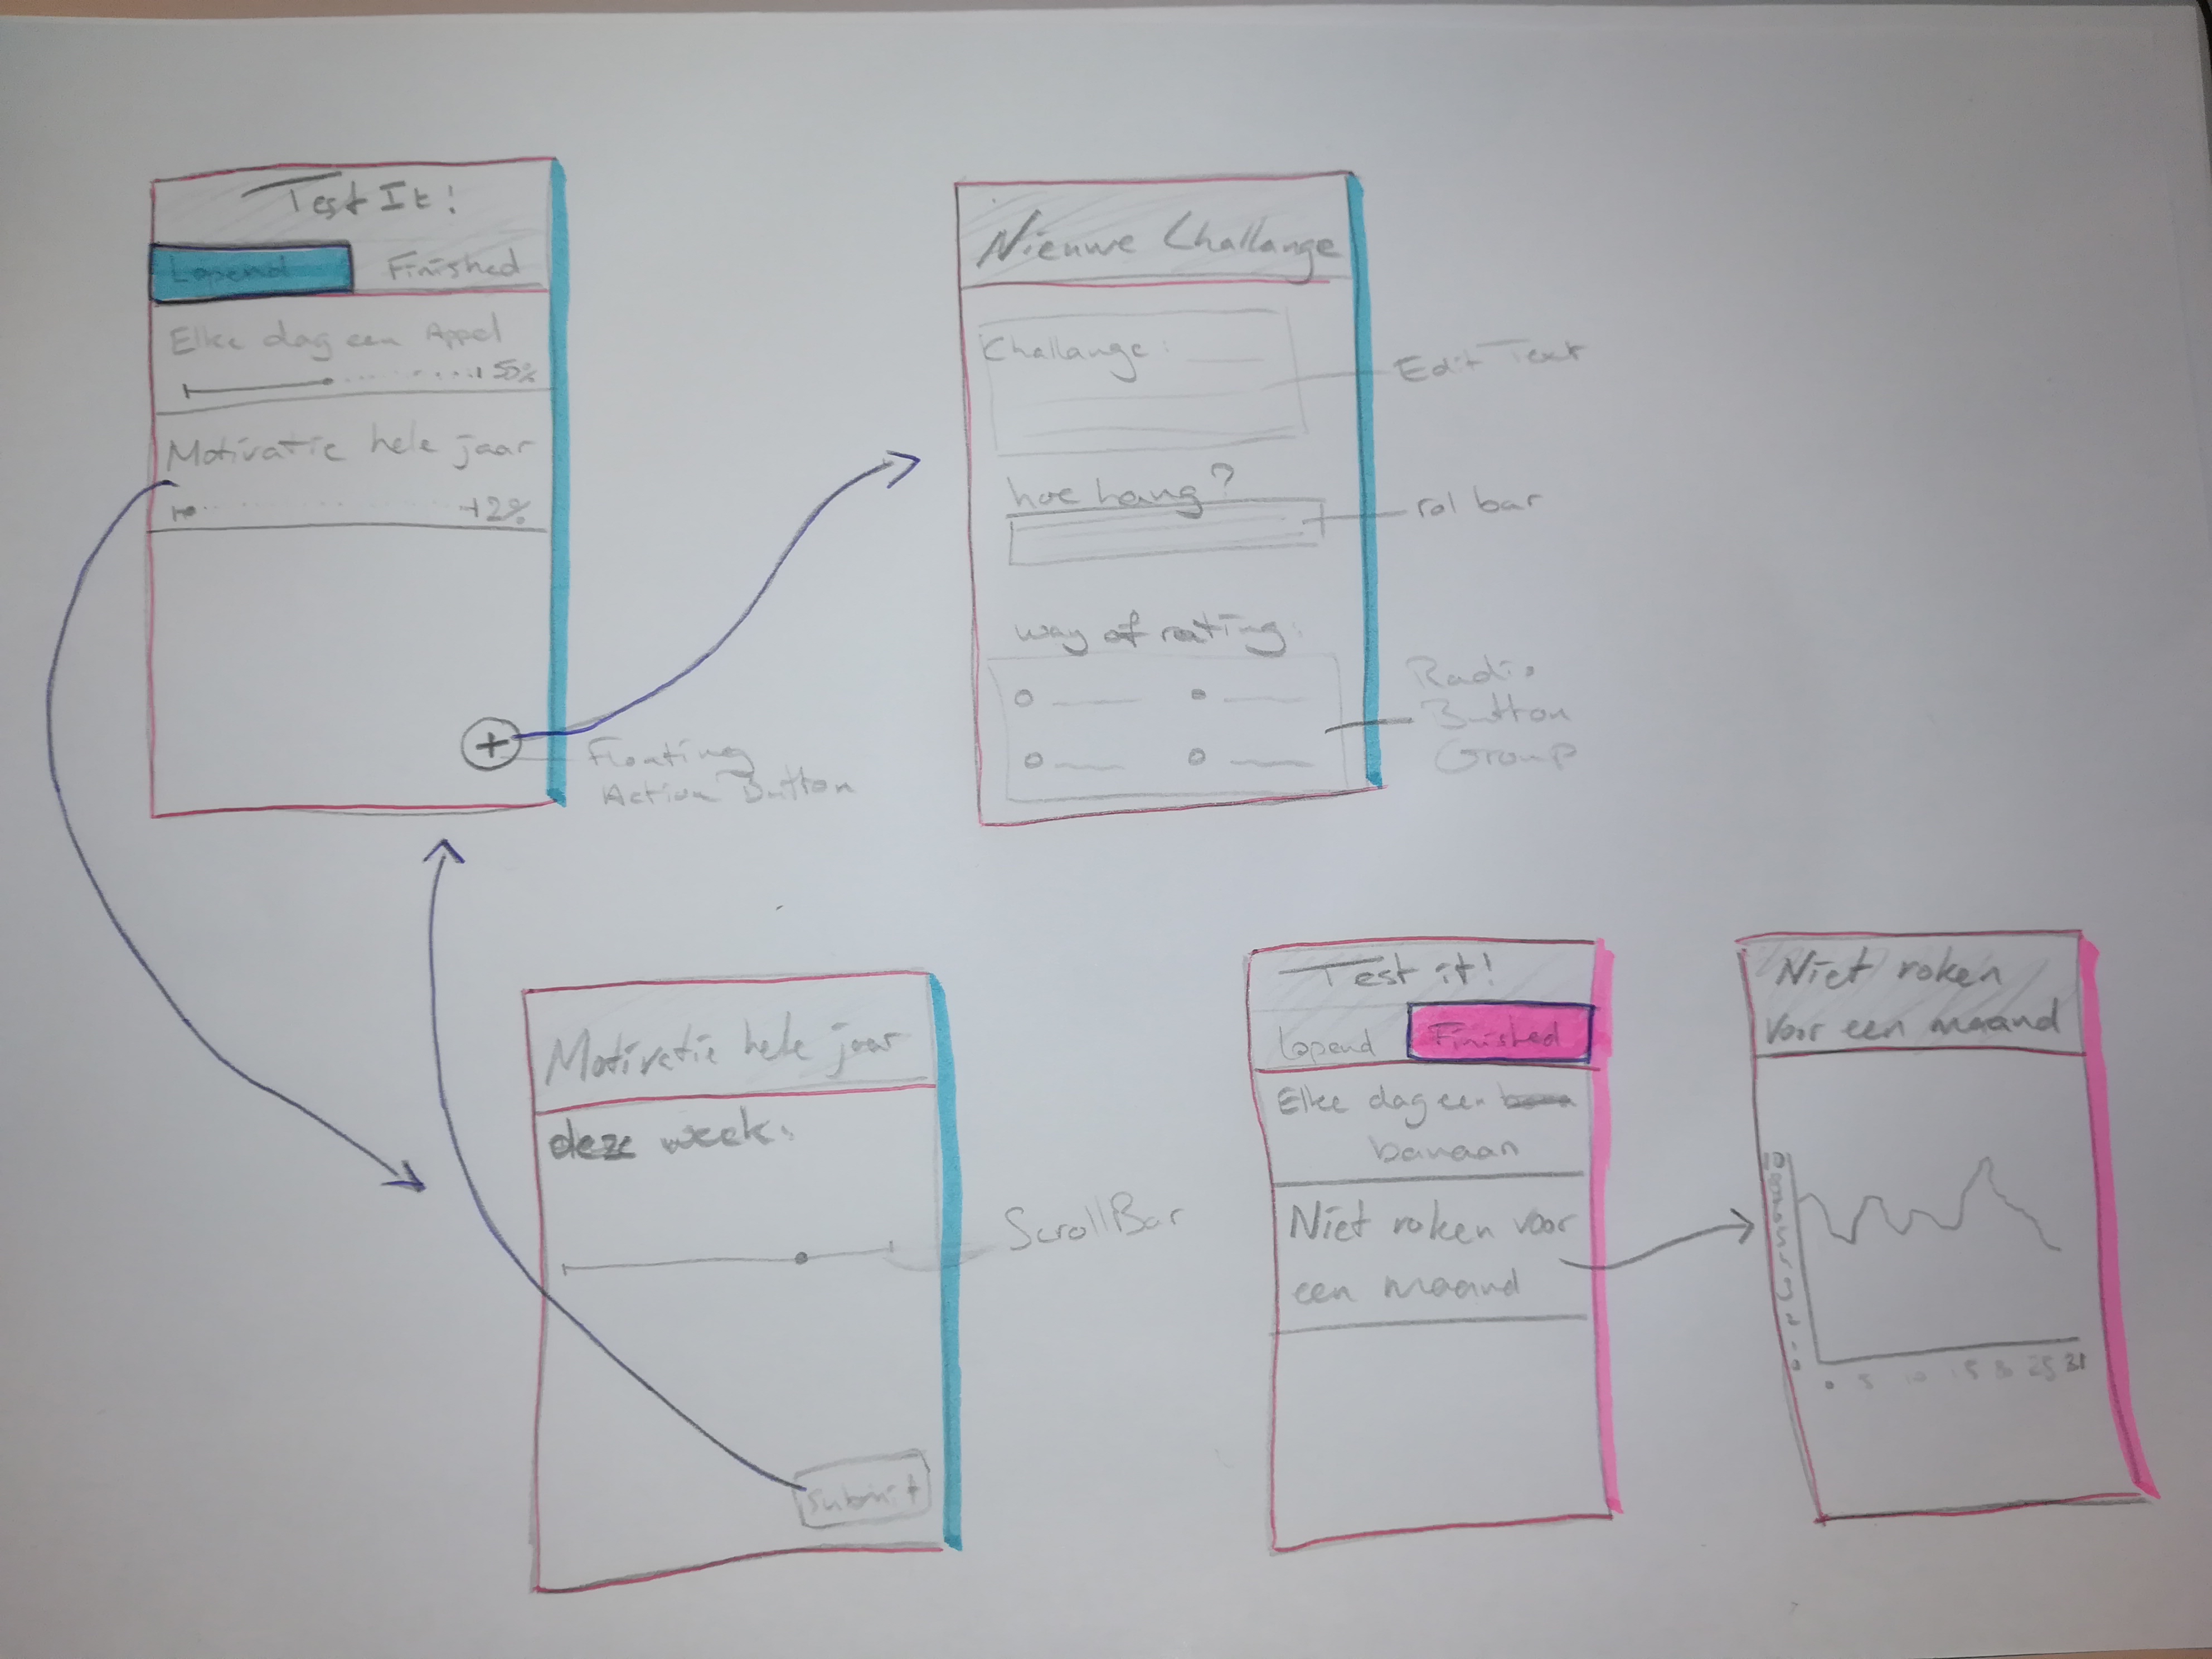 Test It!
Lopend
Finished
Elke dag een Appel
55%
Motivatie hele jaar
2%
+
Floating
Action Button
Nieuwe Challange
Challange:
Edit Text
hoe lang?
rol bar
way of rating:
Radio
Button
Group
Motivatie hele jaar
deze week:
ScrollBar
Submit
Test it!
Lopend
Finished
Elke dag een
banaan
Niet roken voor
een maand
Niet roken
voor een maand
10
0
0 5 10 15 25 31